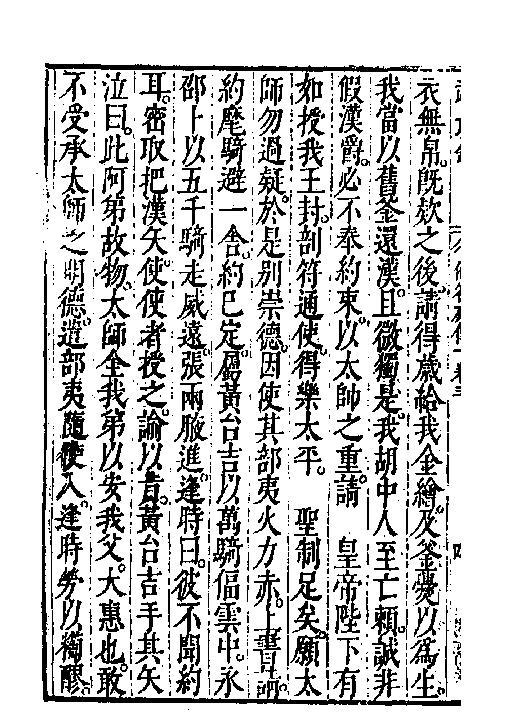 衣無帛。既欸之後。請得歲給我金繒。及釜甕以爲生。
我當以舊釜還漢。且微獨是。我胡中人至亡賴。誠非
假漢爵。必不奉約束。以太師之重。請 皇帝陛下有
如授我王封。剖符通使。得樂太平。 聖制足矣。願太
師勿過疑。於是别崇德。因使其部夷火力赤。上書請。
約麾騎避一舎。約已定。屬黃台吉以萬騎偪雲中。永
邵卜以五千騎走威遠。張兩腋進。逢時曰。彼不聞約
耳。密取把漢矢。使使者授之。諭以旨。黃台吉手其矢
泣曰。此阿弟故物。太師全我弟以安我父。大惠也。敢
不受承太師之明德。遣部夷隨使入。逢時勞以襺醪。